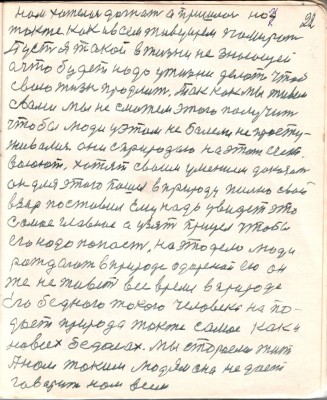 22
нам хотелся дожат а пришлося на
также как и всем живущем я умират
Пуст я такой в жизни не знающей
а что будет надо у жизни делат чтоб
свою жизн продлит. Так как мы живем
свами мы не сможем этого получит
чтобы люди у этом не болели не просту-
живалися они с природою на этом
воюют, хотят своим умением доказат
он для этого пошел в природу жилно свой
взяр поставил ему надо увидет это
самое главное а узят прицел чтобы
его надо попаст, на это дело люди
рождалис в природе одареной ею он
же не живет все время в природе
Его бедного такого человека на по-
дает природа также самое как и
на всех бедолах. Мы стораемся жит
А нам таким людям она не дает
говорит нам всем